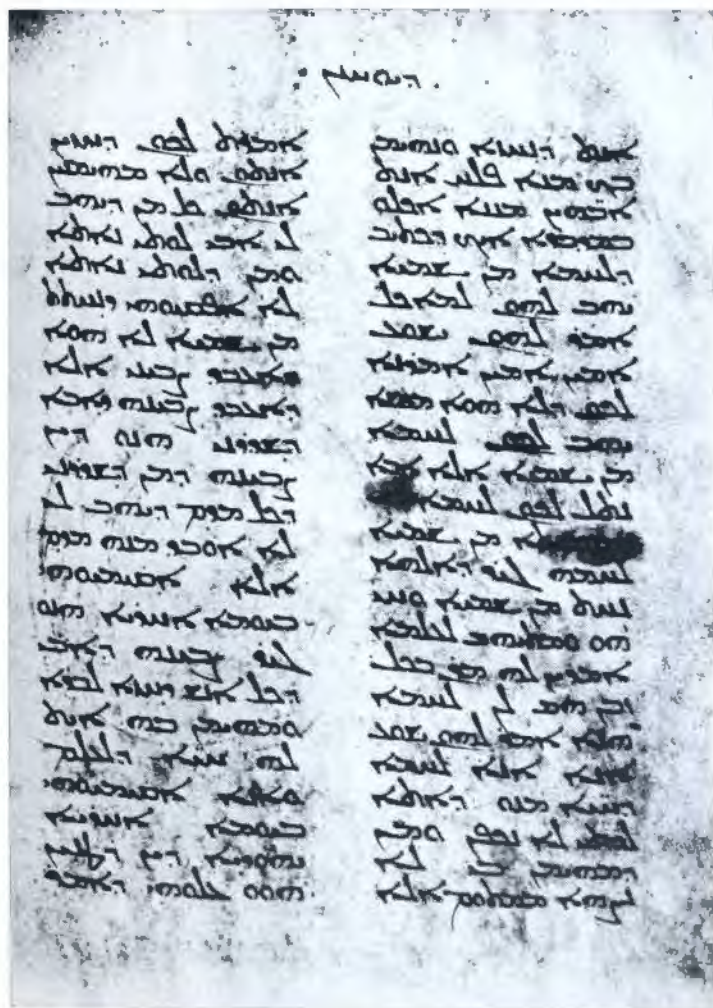 ܕܝܘܚܢܢ
ܐܬܐ ܕܢܚܙܐ ܘܢܗܝܡܢ
ܒܟ ܡܢܐ ܦܠܚ ܐܢܬ
ܐܒܗܝܢ ܡܢܢܐ ܐܟܠܘ
ܒܡܕܒܪܐ ܐܝܟ ܕܟܬܝܒ
ܕܠܚܡܐ ܡܢ ܫܡܝܐ
ܝܗܒ ܠܗܘܢ ܠܡܐܟܠ
ܐܡܪ ܠܗܘܢ ܝܫܘܥ
ܐܡܝܢ ܐܡܝܢ ܐܡܪܢܐ
ܠܟܘܢ ܕܠܐ ܗܘܐ ܡܘܫܐ
ܝܗܒ ܠܟܘܢ ܠܚܡܐ
ܡܢ ܫܡܝܐ ܐܠܐ ܐܒܝ
ܝܗܒ ܠܟܘܢ ܠܚܡܐ
ܡܢ ܫܡܝܐ
ܠܚܡܗ ܓܝܪ ܕܐܠܗܐ
ܢܚܬ ܡܢ ܫܡܝܐ
ܗܘ ܘܡܬܝܗܒ ܠܥܠܡܐ
ܐܡܪܝܢ ܠܗ ܡܪܢ ܒܟܠ
ܙܒܢ ܗܒ ܠܢ ܠܚܡܐ
ܗܢܐ ܐܡܪ ܠܗܘܢ ܝܫܘܥ
ܐܢܐ ܐܢܐ ܠܚܡܐ
ܕܚܝܐ ܡܢ ܕܐܬܐ
ܠܘܬܝ ܠܐ ܢܟܦܢ ܘܡܢ
ܕܡܗܝܡܢ ܒܝ ܠܐ
ܢܨܗܐ ܡܡܬܘܡ ܐܠܐ
ܐܡܪܬ ܠܟܘܢ ܕܚܙܝܢ
ܐܢܬܘܢ ܘܠܐ ܡܗܝܡܢܝܢ
ܐܢܬܘܢ ܟܠ ܡܢ ܕܝܗܒ
ܠܝ ܐܒܝ ܠܘܬܝ ܢܐܬܐ
ܘܡܢ ܕܠܘܬܝ ܢܐܬܐ
ܠܐ ܐܦܩܝܘܗܝ ܕܢܚܬܬ
ܡܢ ܫܡܝܐ ܠܐ ܗܘܐ
ܕܐܥܒܕ ܨܒܝܢܝ ܐܠܐ
ܕܐܥܒܕ ܨܒܝܢܗ ܕܐܒܐ
ܕܫܕܪܢܝ ܗܢܘ ܕܝܢ
ܨܒܝܢܗ ܕܡܢ ܕܫܕܪܢܝ
ܕܟܠ ܡܕܡ ܕܝܗܒ ܠܝ
ܠܐ ܐܘܒܕ ܡܢܗ ܡܕܡ
ܐܠܐ ܐܩܝܡܝܘܗܝ
ܒܝܘܡܐ ܐܚܪܝܐ ܗܢܘ
ܓܝܪ ܨܒܝܢܗ ܕܐܒܝ
ܕܟܠ ܐܢܫ ܕܚܙܐ ܠܒܪܐ
ܘܡܗܝܡܢ ܒܗ ܐܝܬ
ܠܗ ܚܝܐ ܕܠܥܠܡ
ܘܐܢܐ ܐܩܝܡܝܘܗܝ
ܒܝܘܡܐ ܐܚܪܝܐ
ܝܗܘܕܝܐ ܕܝܢ ܪܛܢܝܢ
ܗܘܘ ܥܠܘܗܝ ܕܐܡܪ